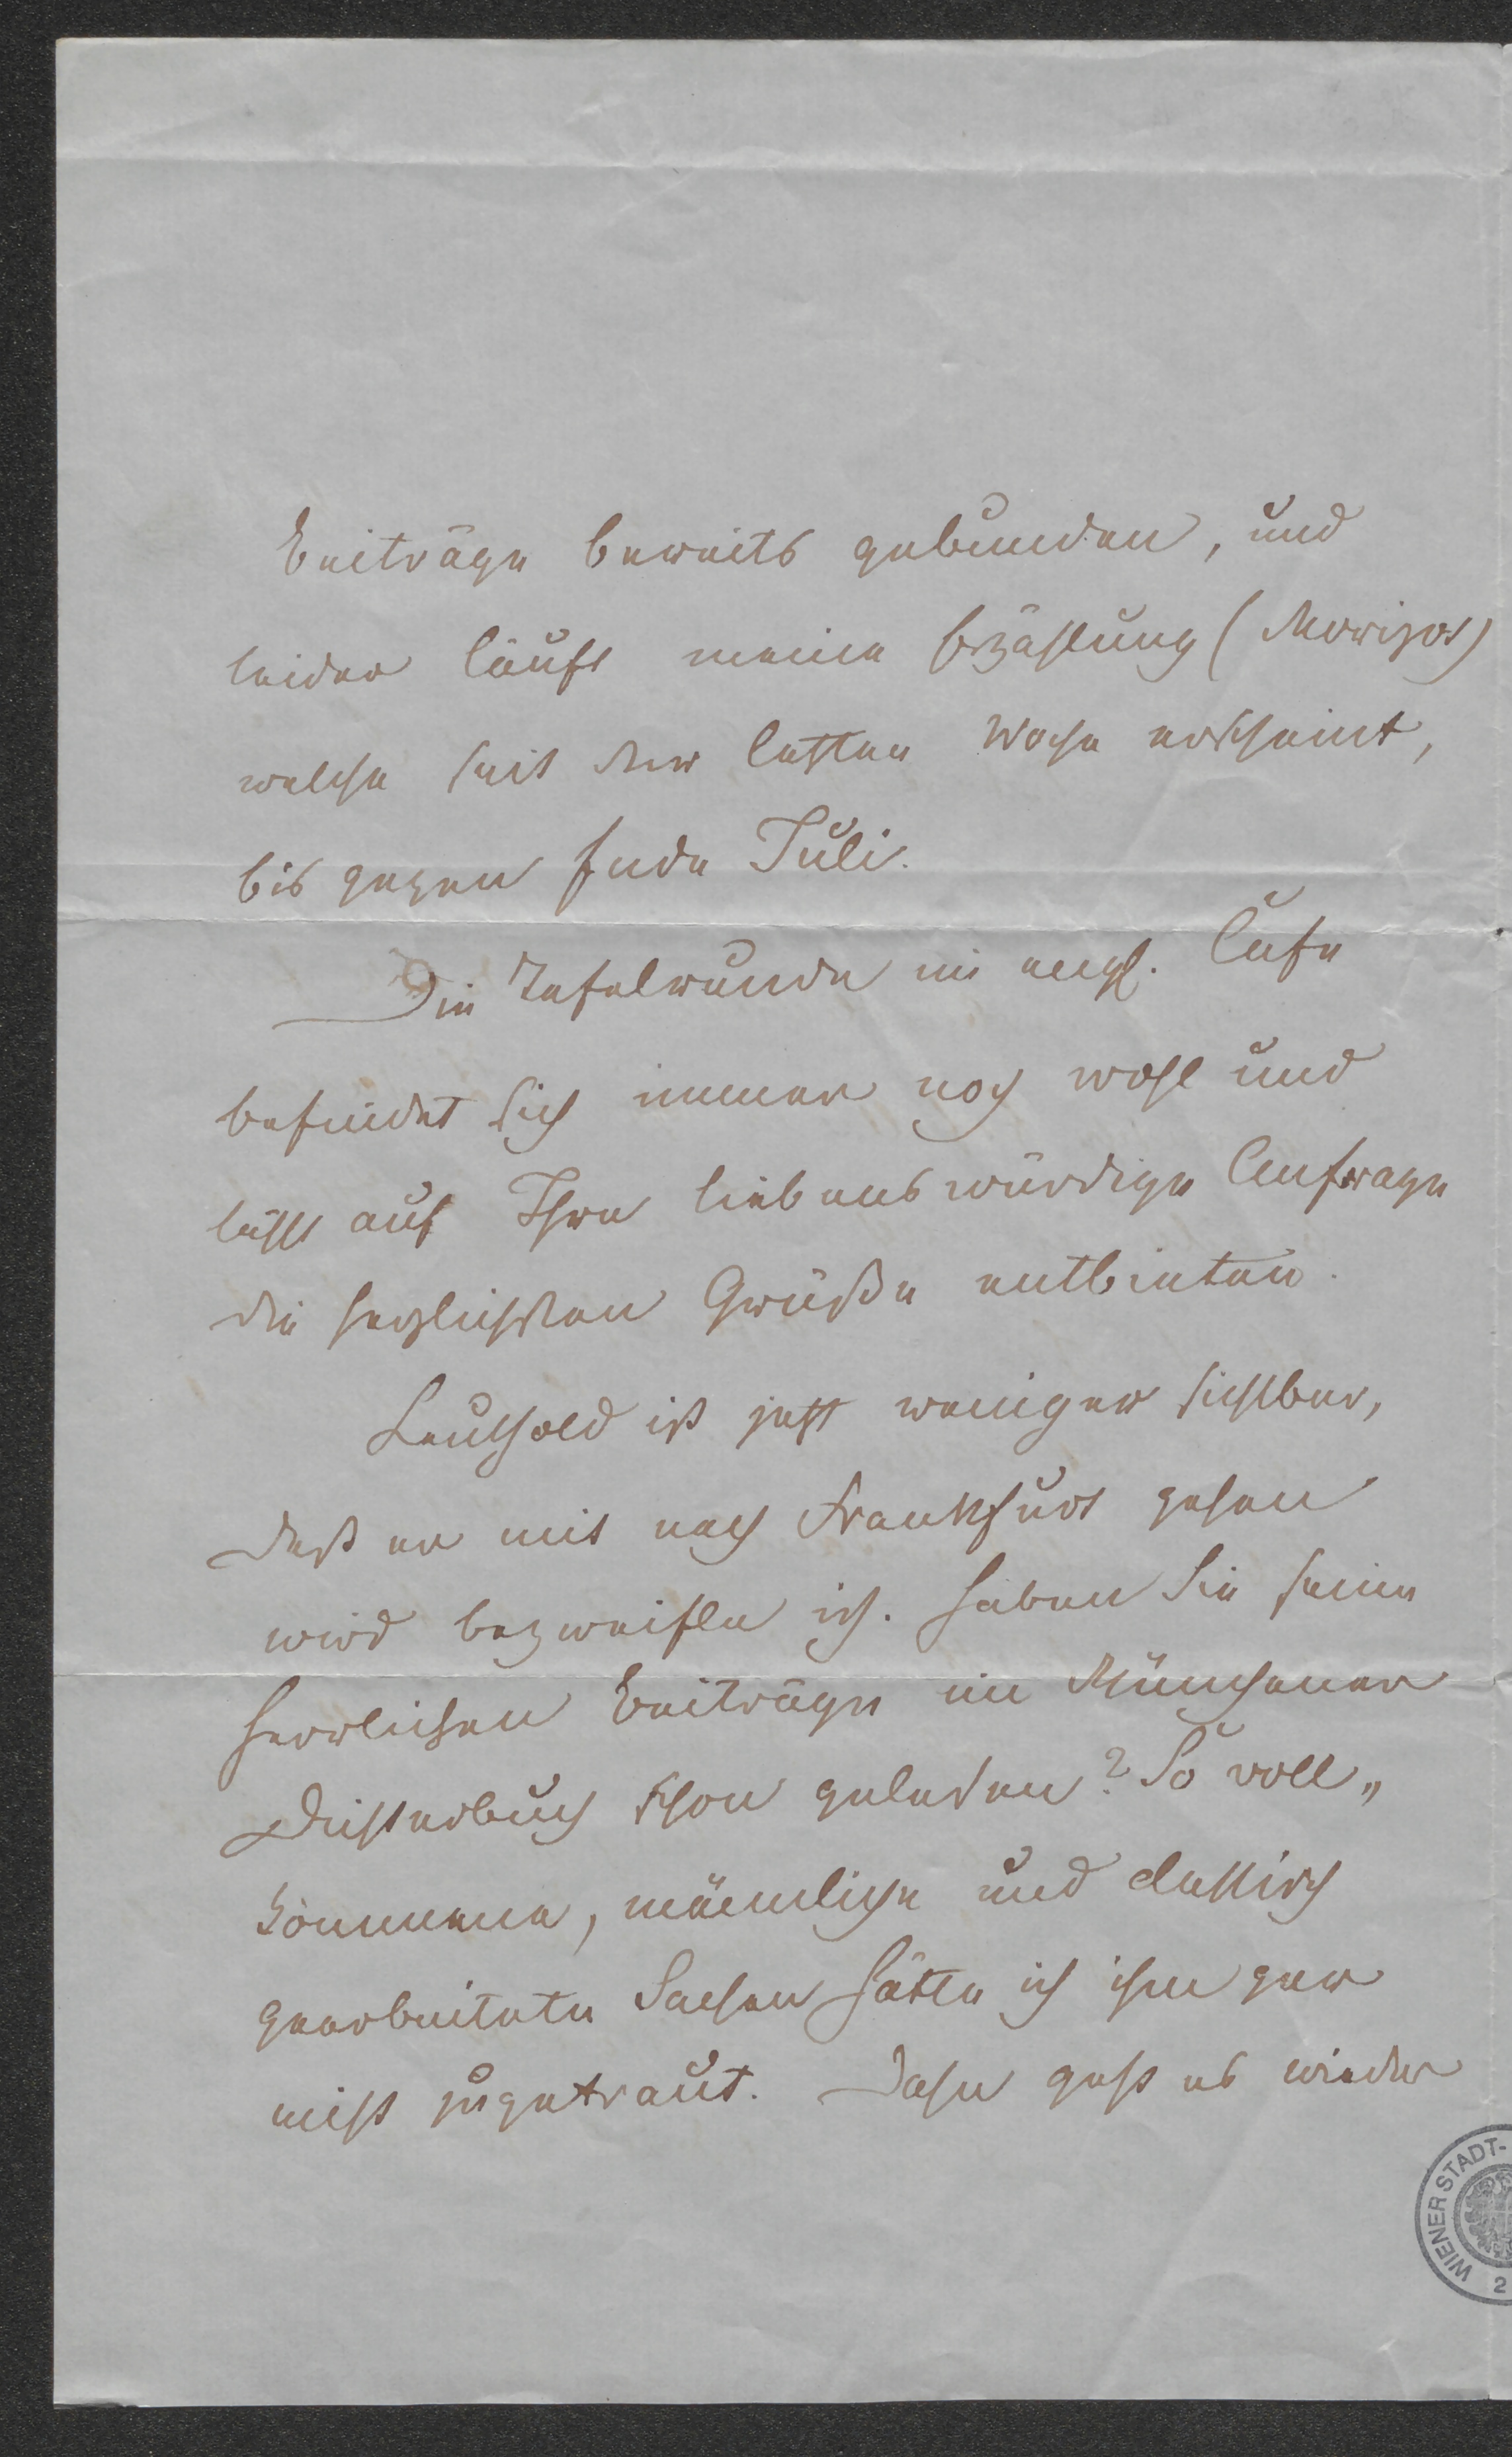 Beiträge bereits gebunden, und
leider läuft meine Erzählung (Morizos)
welche seit der letzten Woche erscheint,
bis gegen Ende Juli.
Die Tafelrunde im engl. Cafe
befindet sich immer noch wohl und
läßt auf Ihre liebenswürdige Anfrage
die herzlichsten Grüße entbieten.
Leuthold ist jetzt weniger sichtbar,
daß er mit nach Frankfurt gehen
wird bezweifle ich. Haben Sie seine
herrlichen Beiträge im Münchener
Dichterbuch schon gelesen? So voll„
kommene, männliche und classisch
gearbeitete Sachen hätte ich ihm gar
nicht zugetraut. Dahn geht es wieder
WIENER STADT-
2